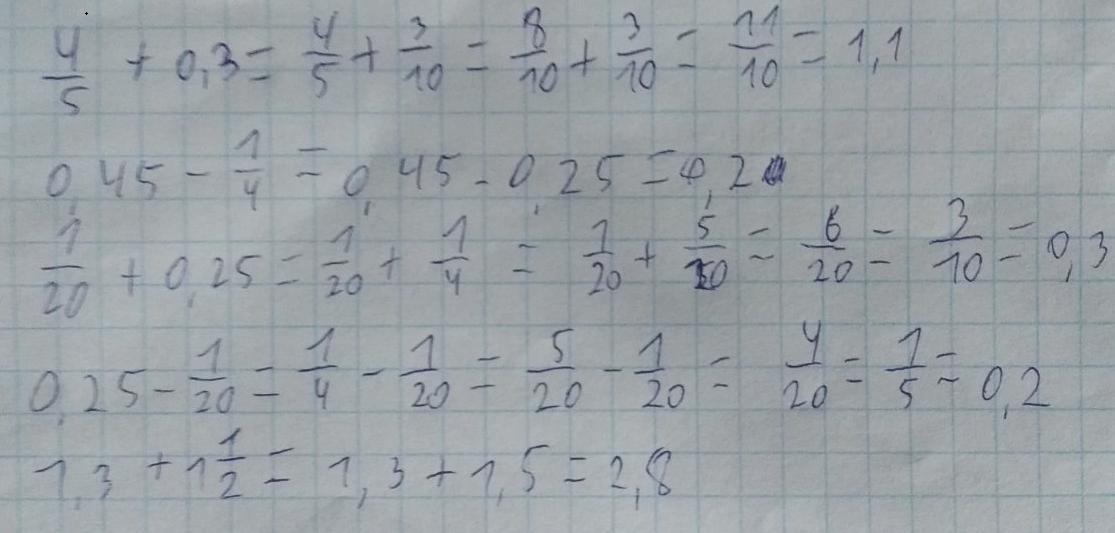 4/5 + 0,3 = 4/5 + 3/10 = 8/10 + 3/10 = 11/10 = 1,1
0,45 - 1/4 = 0,45 - 0,25 = 0,2
1/20 + 0,25 = 1/20 + 1/4 = 1/20 + 5/20 = 6/20 = 3/10 = 0,3
0,25 - 1/20 = 1/4 - 1/20 = 5/20 - 1/20 = 4/20 = 1/5 = 0,2
1,3 + 1 1/2 = 1,3 + 1,5 = 2,8